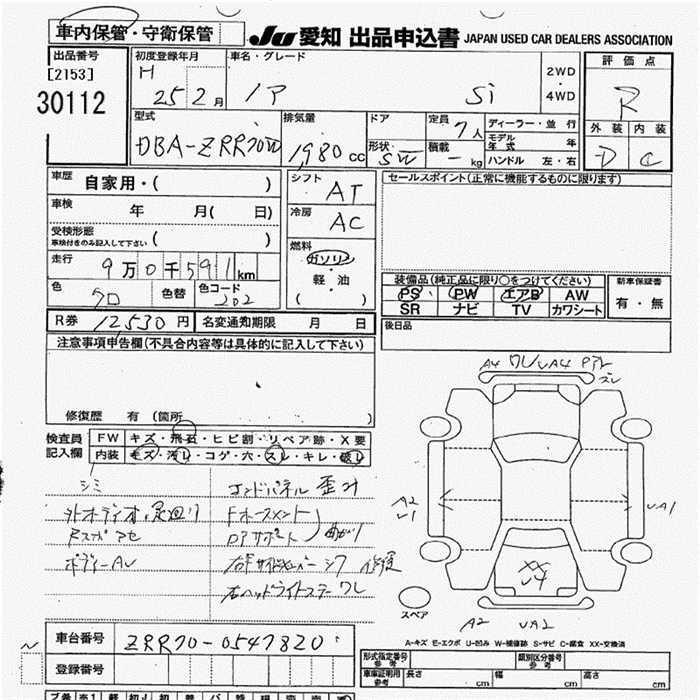 車内保管・守衛保管
JU 愛知 出品申込書 JAPAN USED CAR DEALERS ASSOCIATION
出品番号
[2153]
30112
初度登録年月
H 25 2月
車名・グレード
ノア Si
2WD
・
4WD
評価点
R
外装 内装
D C
型式
DBA-ZRR70W
排気量
1,980 cc
ドア
形状・ SW
定員 7人
積載 - kg
ディーラー・並行
モデル年式 年
ハンドル 左・右
車歴 自家用・( )
車検 年 月( 日)
受検形態
車検付きのみ記入して下さい ( )
走行 9万0千591km
色 クロ 色替 色コード 202
シフト AT
冷房 AC
燃料
ガソリン
・
軽・油
( )
セールスポイント(正常に機能するものに限ります)
装備品(純正品に限り○をつけてください)
PS PW エアB AW
SR ナビ TV カワシート
新車保証書
有・無
後日品
R券 12,530円 名変通知期限 月 日
注意事項申告欄(不具合内容等は具体的に記入して下さい)
修復歴 有 (箇所 )
検査員記入欄
FW キズ・飛石・ヒビ割・リペア跡・X要
内装 キズ・汚れ・コゲ・穴・スレ・キレ・破レ
シミ
外オーディオ、足廻り
ボディーAU
エンドパネル歪み
Fホースメント
DPサポート 曲がり
右ヘッドライトステーワレ
A4 ワレ UA4
ズレ
A2
U1
UA1
XX
U4
A2 UA2
スペア
A-キズ E-エクボ U-凹み W-補修跡 S-サビ C-腐食 XX-交換済
車台番号 ZRR70-0547820
登録番号
形式指定番号
参考
類別区分番号
参考
車庫証明用
参考
長さ cm 幅 cm 高さ cm